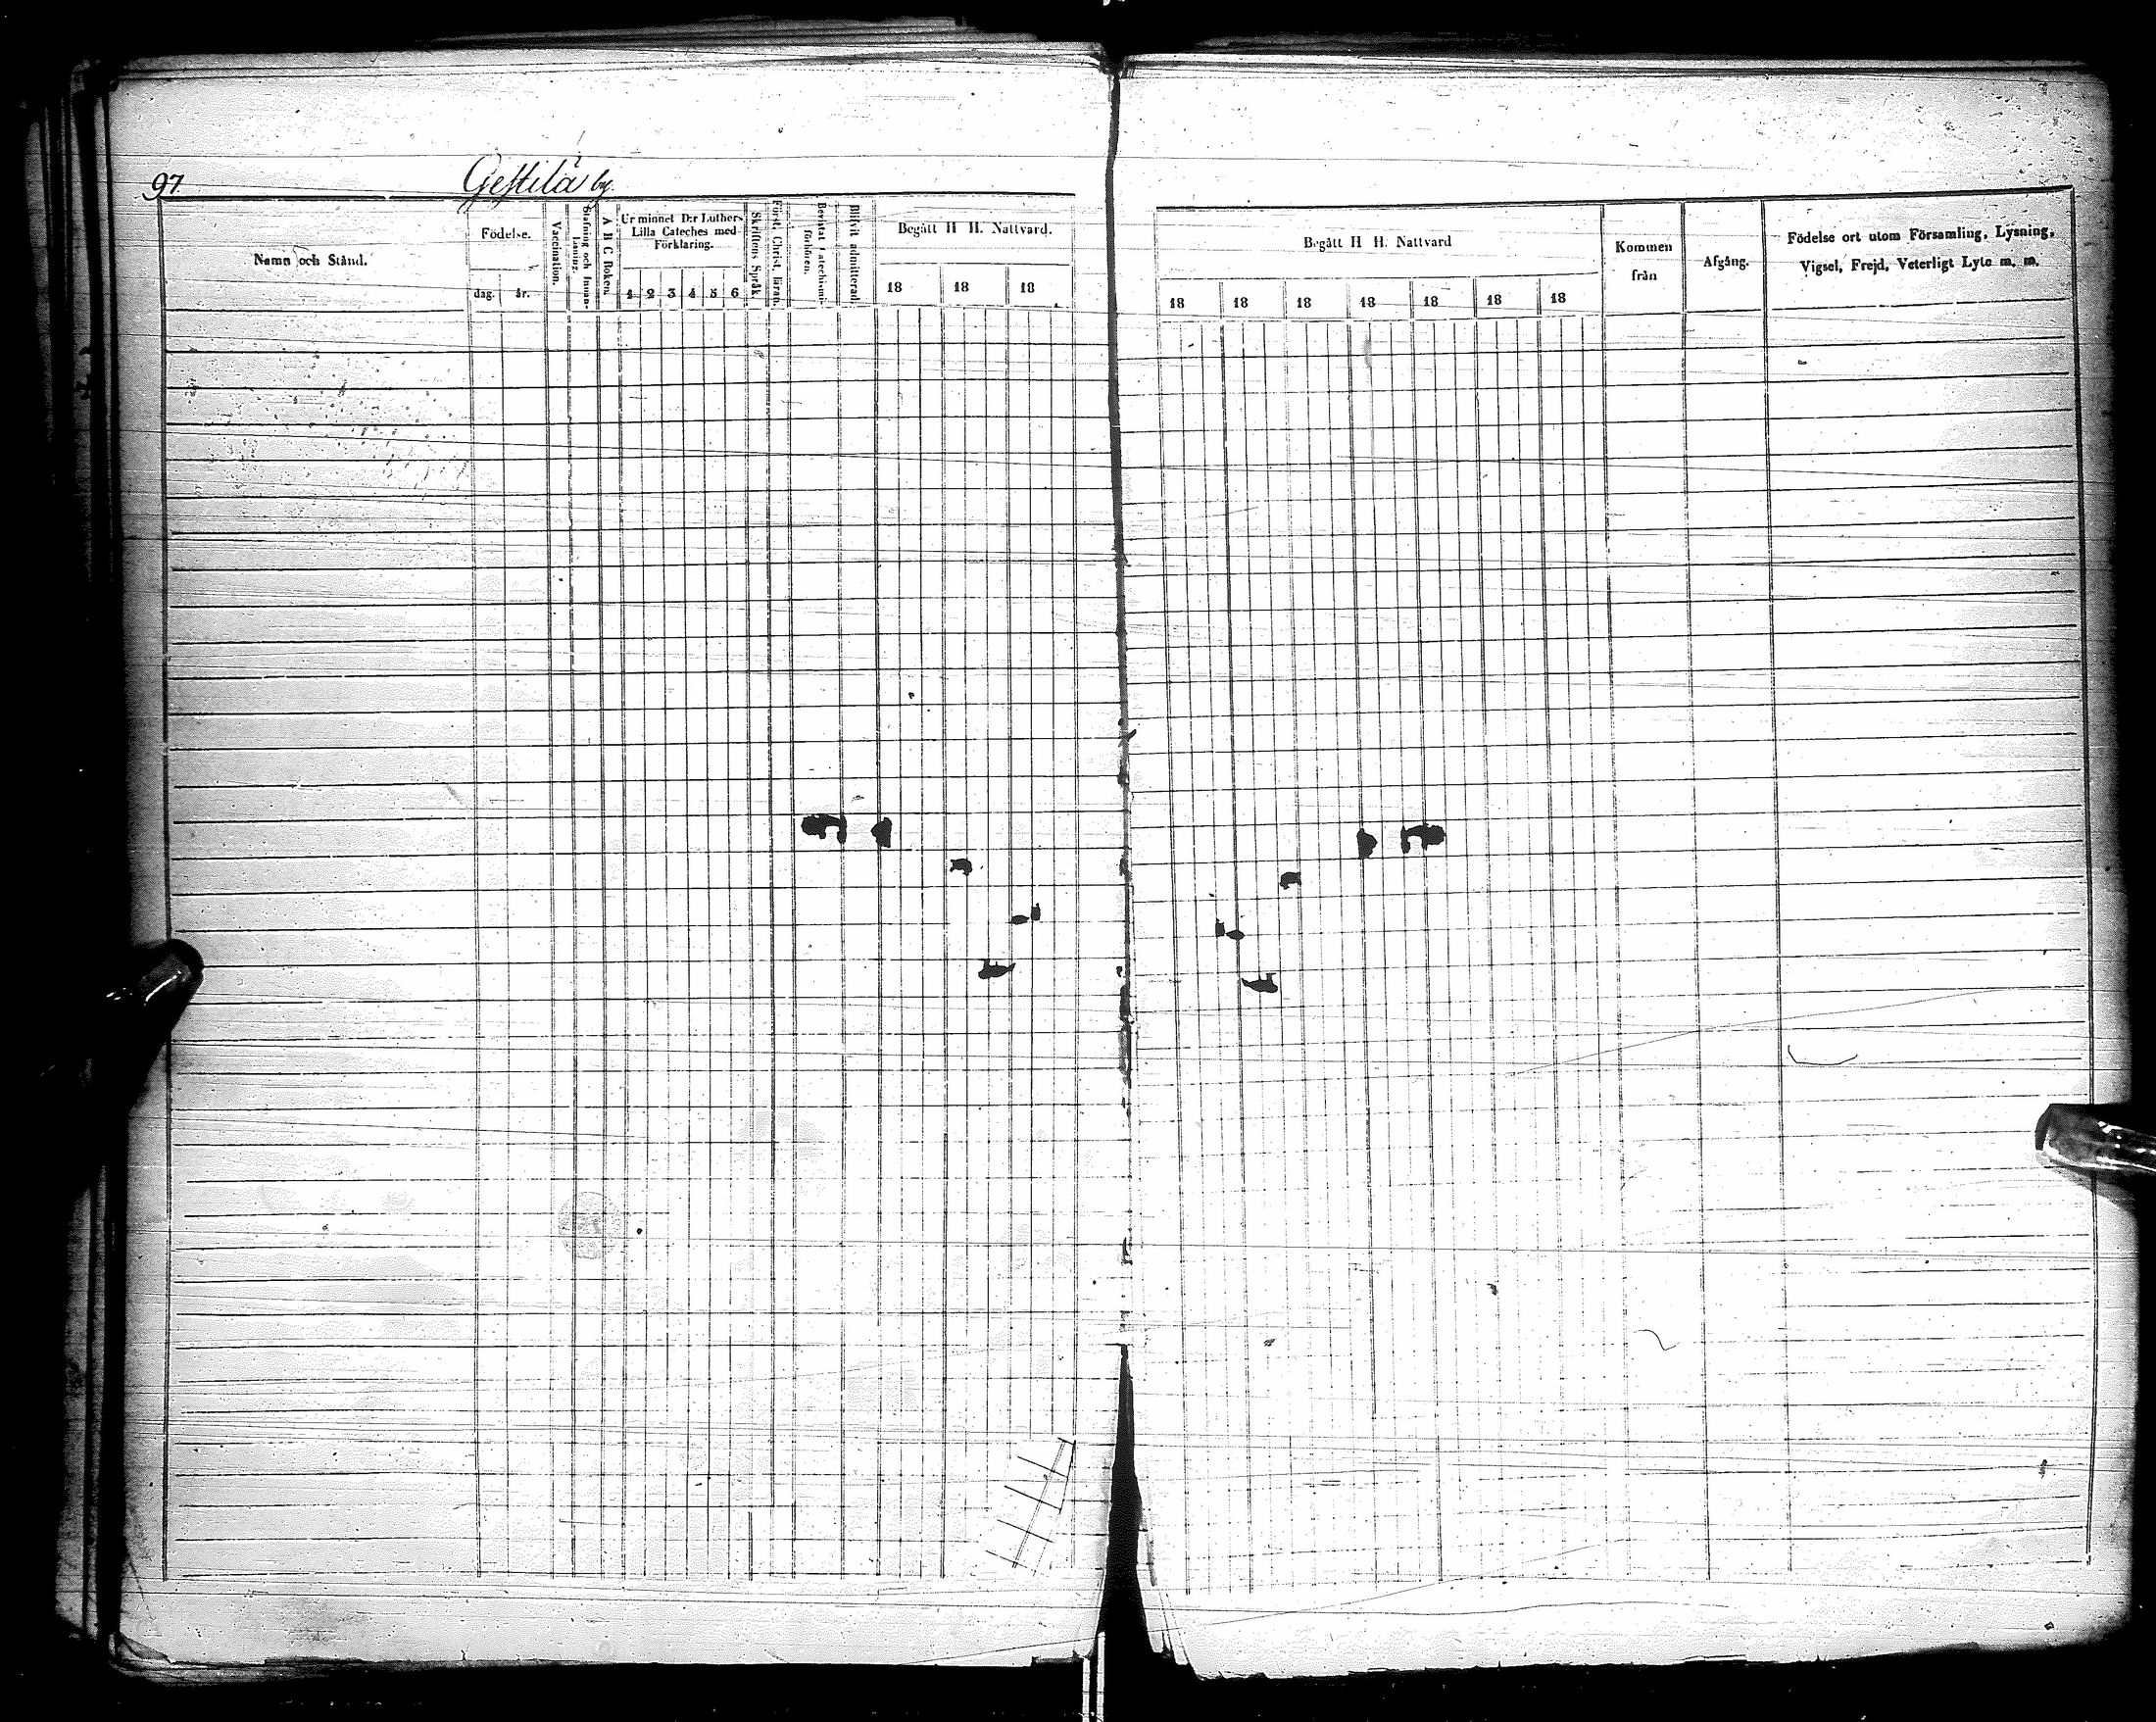 97.
Gestilä by.
Namn och Stånd.
Födelse.
dag. år.
Vaccination.
Stafning och Innan-
Läsning.
A B C Boken.
Ur minnet D:r Luthers
Lilla Cateches med
Förklaring.
1 2 3 4 5 6
Skriftens Språk.
Först. Christ. läran.
Bevistat Catechismi-
förhören.
Blifvit admitterad.
Begått H H. Nattvard.
18 18 18
Begått H H. Nattvard
18 18 18 18 18 18 18
Kommen
från
Afgång.
Födelse ort utom Församling, Lysning,
Vigsel, Frejd, Veterligt Lyte m. m.